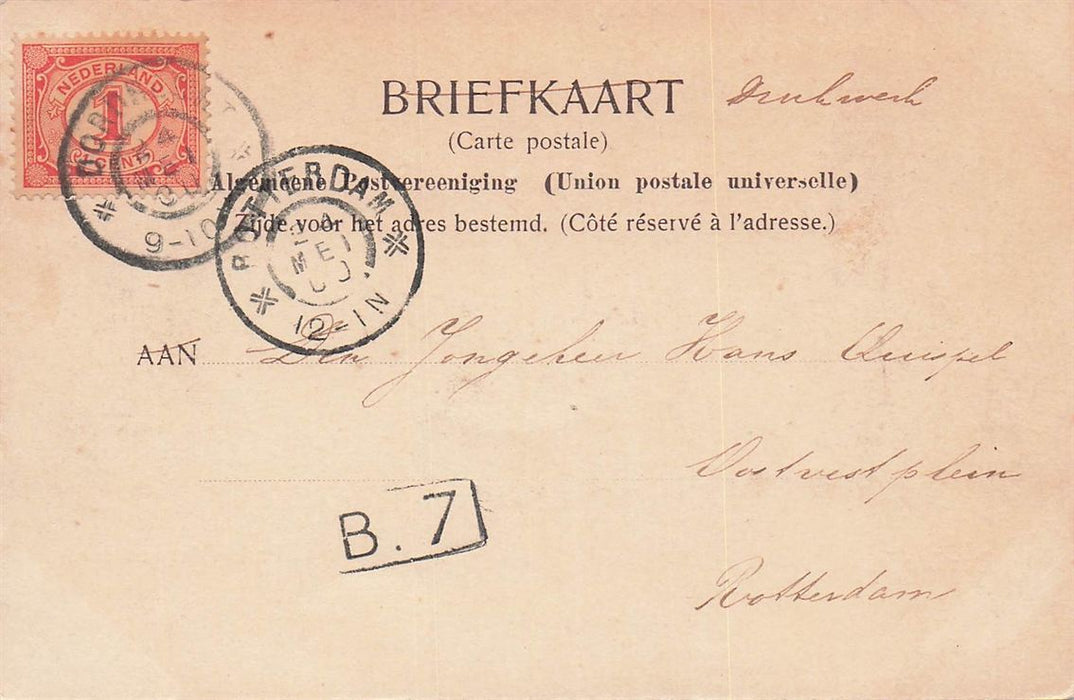 NEDERLAND
1
CENT
9-10
BRIEFKAART Drukwerk
(Carte postale)
Algemeene Postvereeniging (Union postale universelle)
Zijde voor het adres bestemd. (Côté réservé à l'adresse.)
ROTTERDAM
MEI
00
12-1N
AAN Den Jongeheer Hans Quispel
Oostvestplein
B. 7
Rotterdam